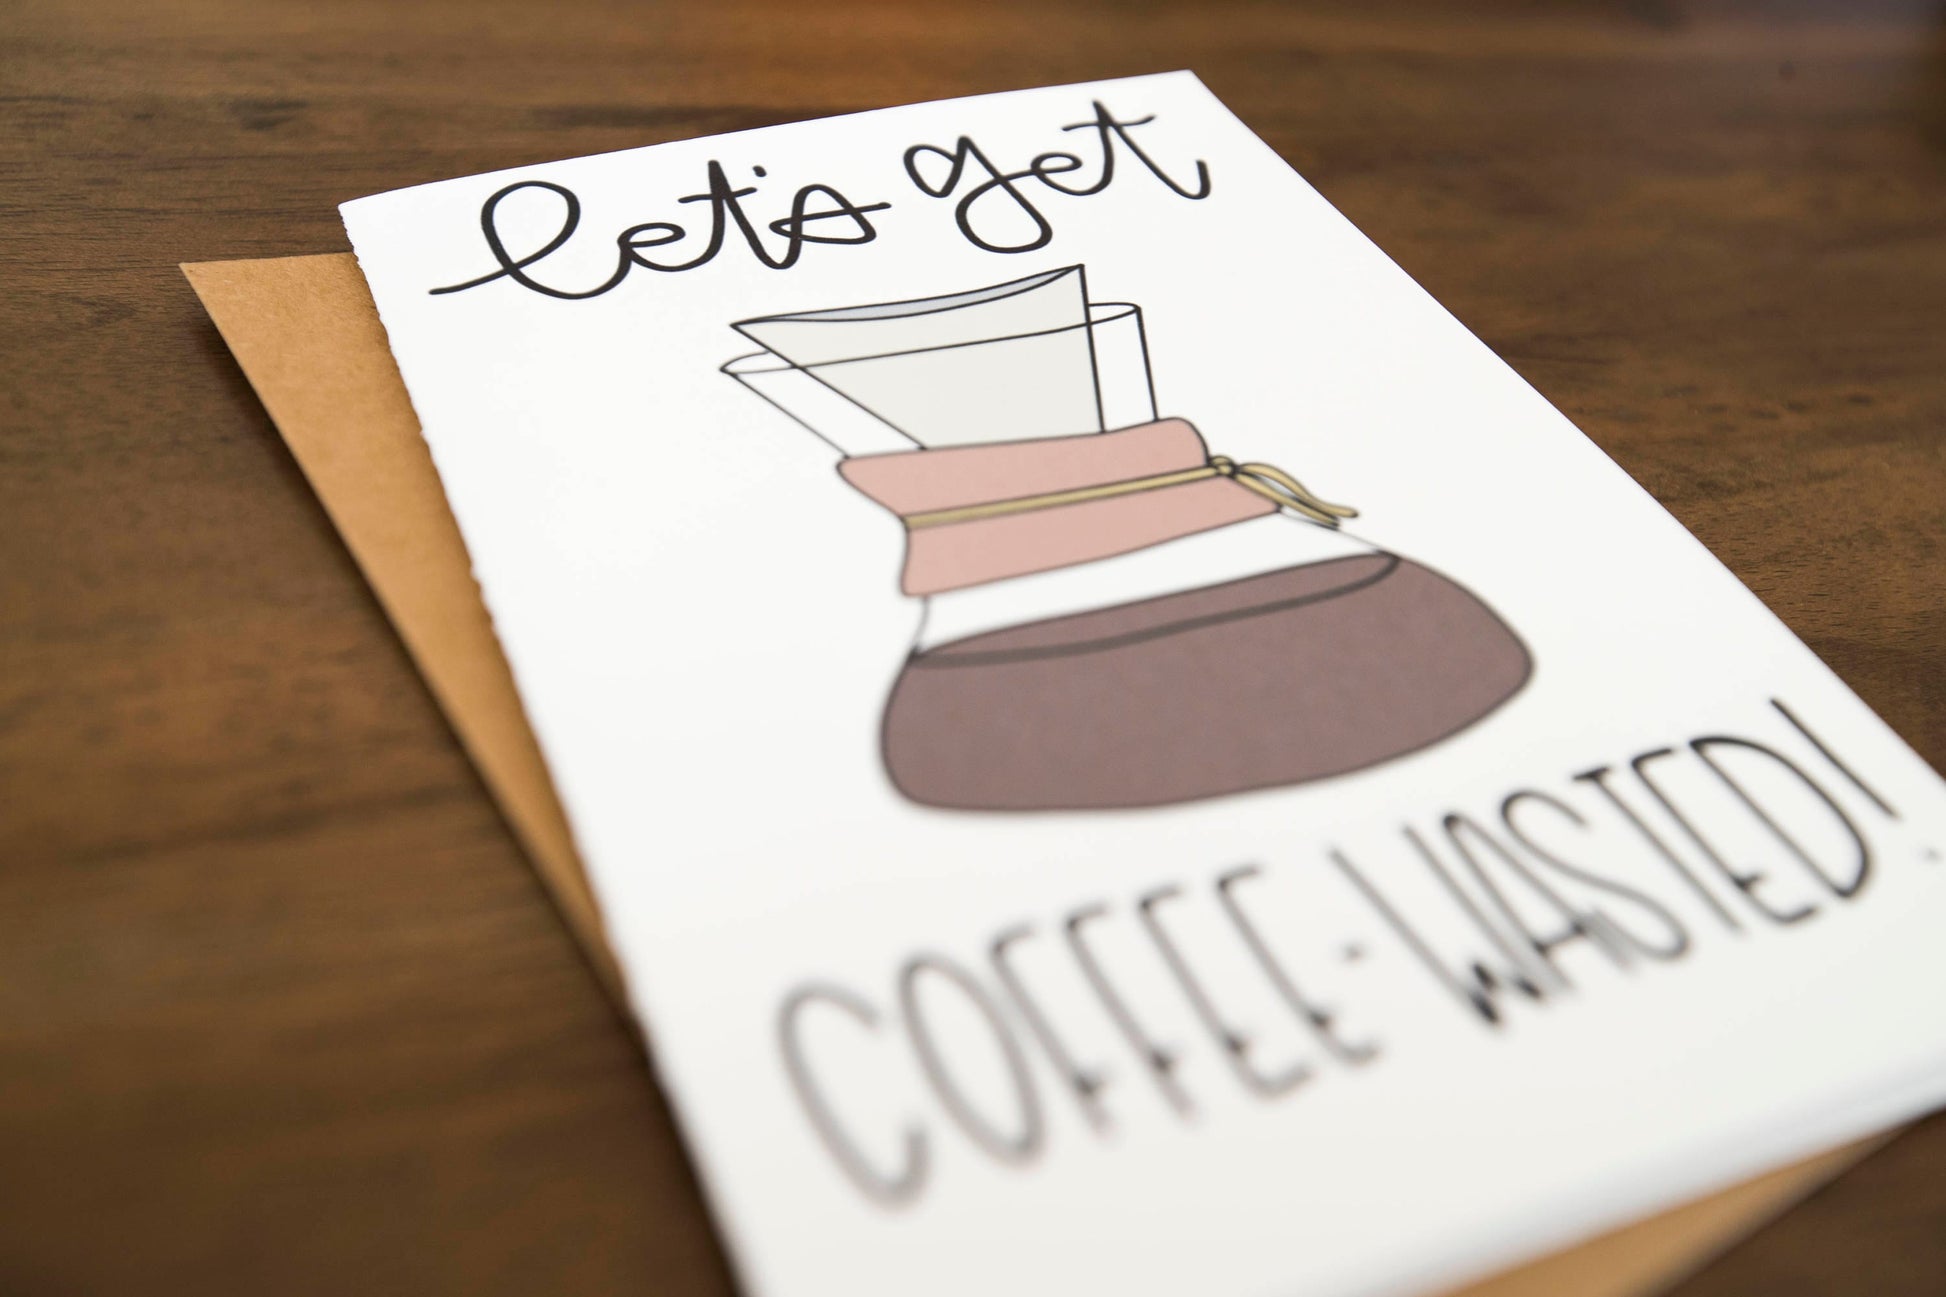 let's get
COFFEE-WASTED!